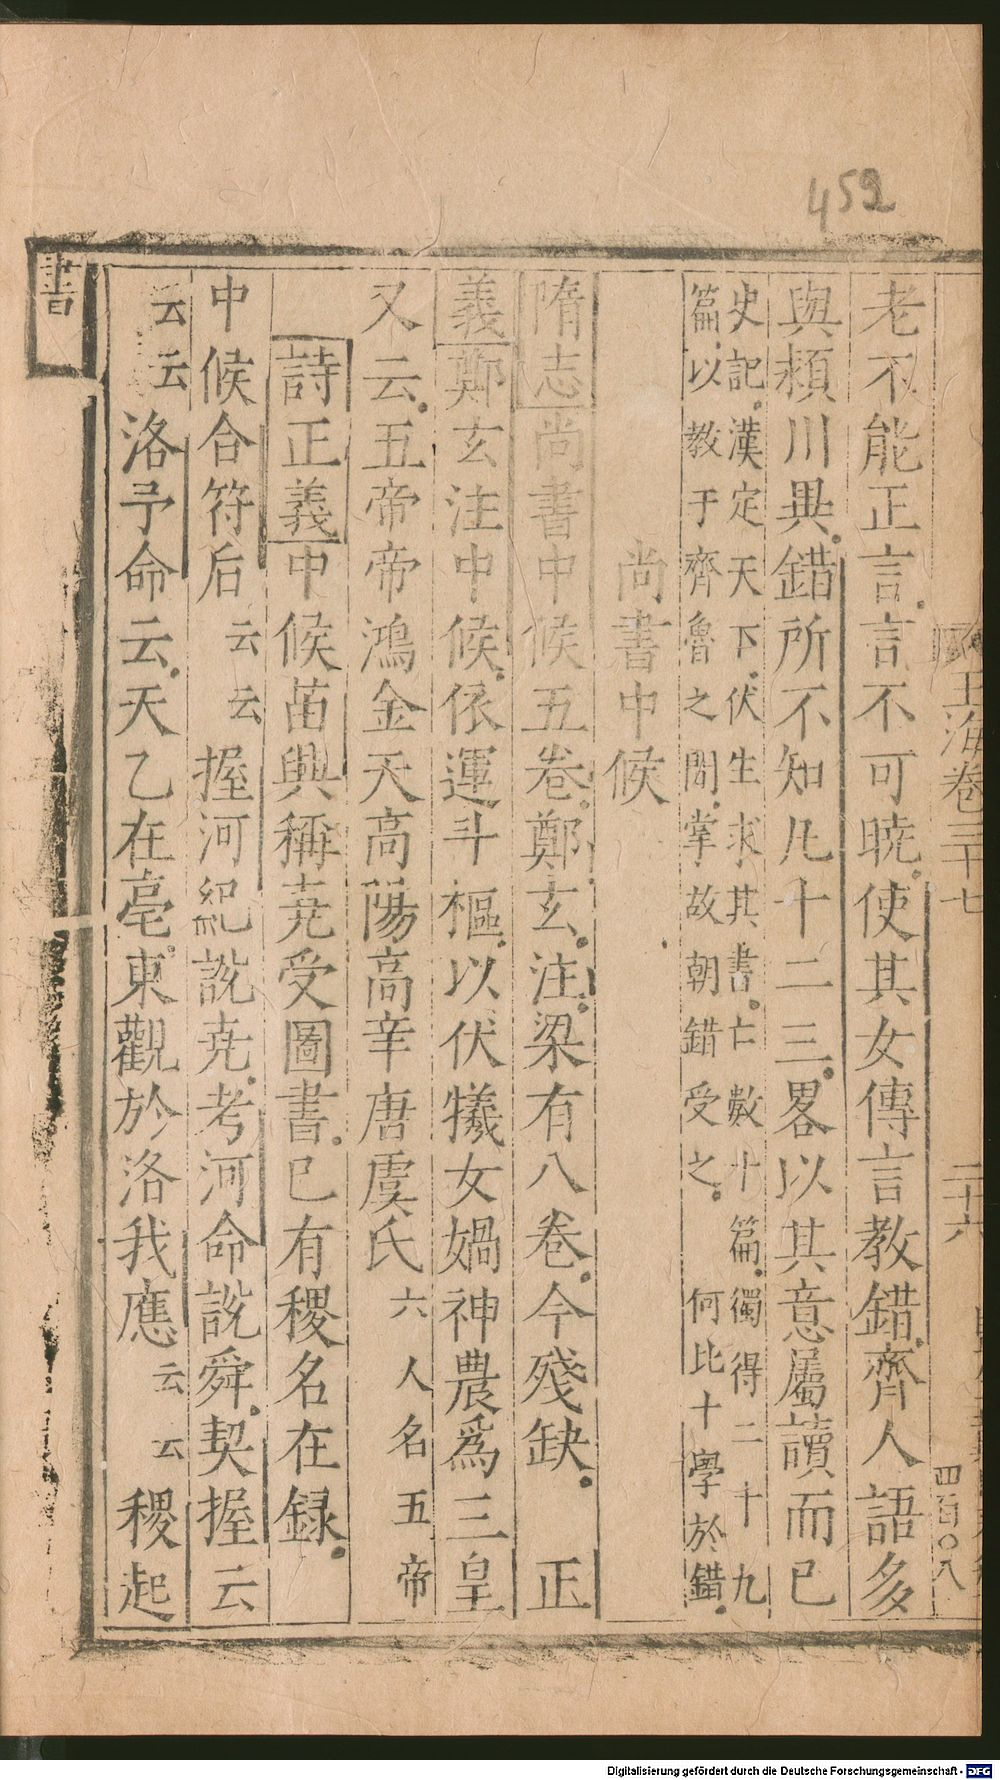 459
書
老不能正言言不可曉使其女傳言教錯齊人語多
與頴川異錯所不知凡十二三畧以其意屬讀而已
史記漢定天下伏生求其書亡數十篇獨得二十九
篇以教于齊魯之間掌故朝錯受之 何比十學於錯
尚書中候
隋志尚書中候五卷鄭玄注梁有八卷今殘缺 正
義鄭玄注中候依運斗樞以伏犧女媧神農爲三皇
又云五帝帝鴻金天高陽高辛唐虞氏六人名五帝
詩正義中候苗興稱堯受圖書已有稷名在録
中候合符后云云握河紀說堯考河命說舜契握云
云云洛予命云天乙在亳東觀於洛我應云云稷起
玉海卷三十七
二十六
四百〇八
Digitalisierung gefördert durch die Deutsche Forschungsgemeinschaft - DFG